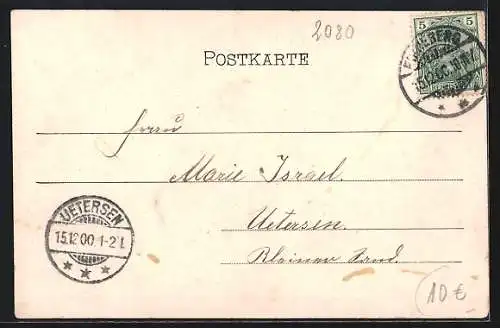 2080
5 5
POSTKARTE
15.12.00.10-11V
Frau
Marie Israel.
Uetersen.
Kleiner Sand.
UETERSEN
15.12 00 1-2 N.
10€